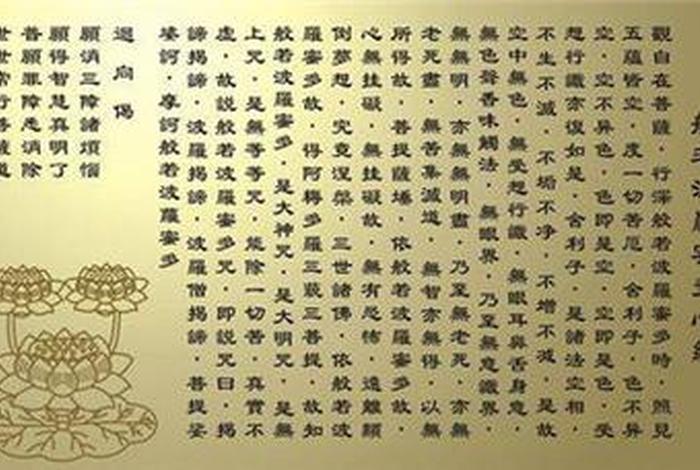 觀自在菩薩·行深般若波羅蜜多時·照見
五蘊皆空·度一切苦厄·舍利子·色不异
空·空不异色·色即是空·空即是色·受
想行識亦復如是·舍利子·是諸法空相·
不生不滅·不垢不净·不增不减·是故
空中無色·無受想行識·無眼耳鼻舌身意·
無色聲香味觸法·無眼界·乃至無意識界·
無無明·亦無無明盡·乃至無老死·亦無
老死盡·無苦集滅道·無智亦無得·以無
所得故·菩提薩埵·依般若波羅蜜多故·
心無挂礙·無挂礙故·無有恐怖·遠離顛
倒夢想·究竟涅槃·三世諸佛·依般若波
羅蜜多故·得阿耨多羅三藐三菩提·故知
般若波羅蜜多·是大神咒·是大明咒·是無
上咒·是無等等咒·能除一切苦·真實不
虛·故説般若波羅蜜多咒·即説咒曰·揭
諦揭諦·波羅揭諦·波羅僧揭諦·菩提娑
婆訶·摩訶般若波羅蜜多
迴向偈
願消三障諸煩惱
願得智慧真明了
普願罪障悉消除
世世常行菩薩道